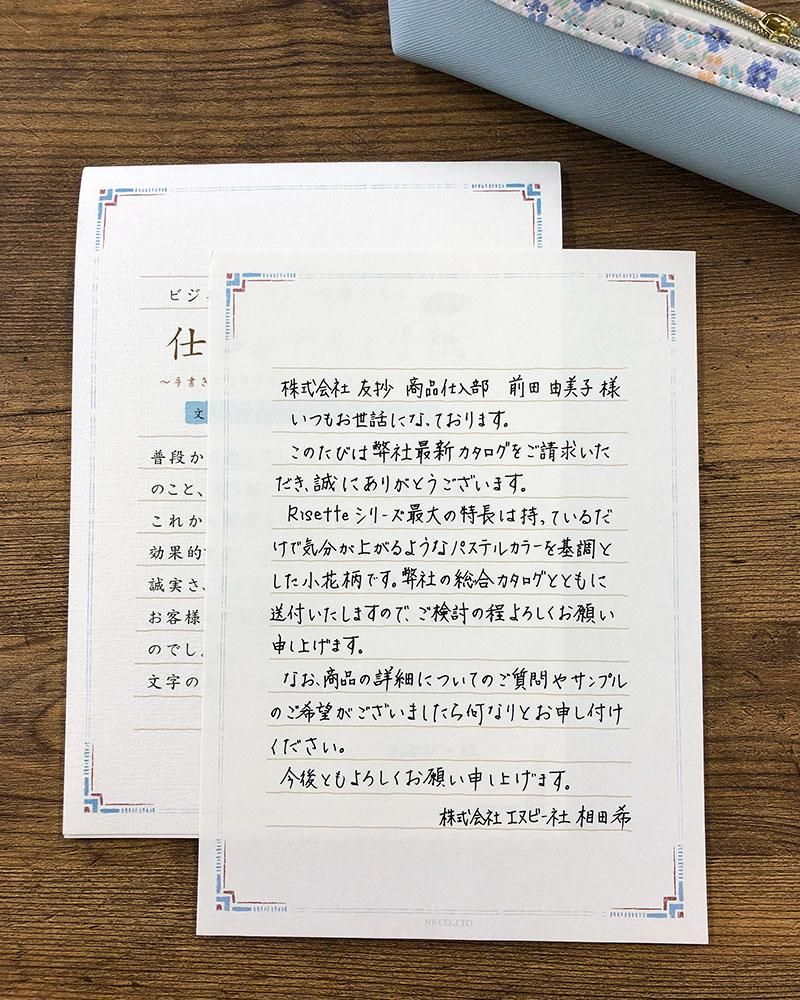 ビジ
仕
～手書き
文
普段か
のこと、
これか
効果的
誠実さ、
お客様
のでし
文字の
株式会社 友抄 商品仕入部 前田 由美子 様
いつもお世話になっております。
このたびは弊社最新カタログをご請求いた
だき、誠にありがとうございます。
Risetteシリーズ最大の特長は持っているだ
けで気分が上がるようなパステルカラーを基調と
した小花柄です。弊社の総合カタログとともに
送付いたしますので、ご検討の程よろしくお願い
申し上げます。
なお、商品の詳細についてのご質問やサンプル
のご希望がございましたら何なりとお申し付け
ください。
今後ともよろしくお願い申し上げます。
株式会社 エヌビー社 相田 希
NB CO.,LTD